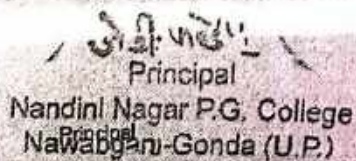 Principal
Nandini Nagar P.G. College
Nawabganj-Gonda (U.P.)
Principal